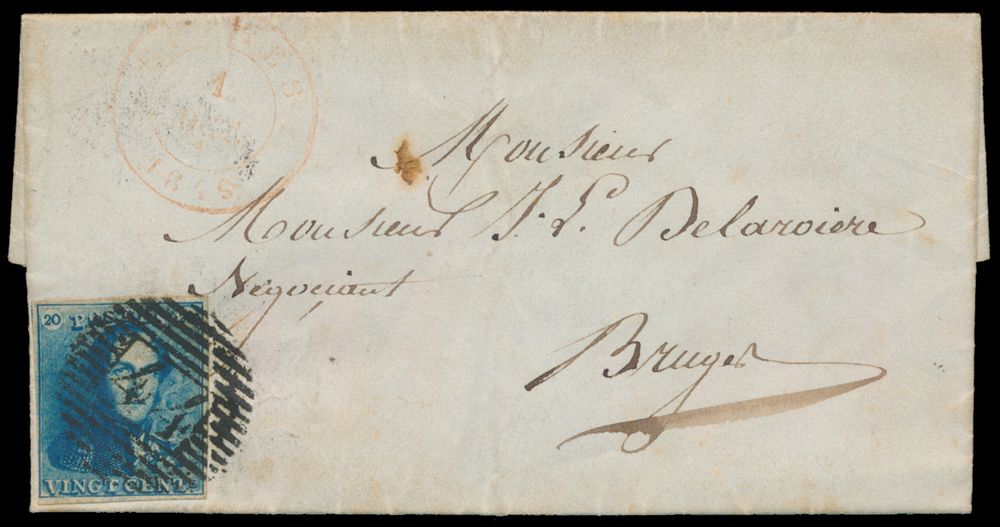 1
1849
Monsieur
Monsieur J. L. Delaroiere
Négociant
Bruges
20 POSTES
VINGT CENT.